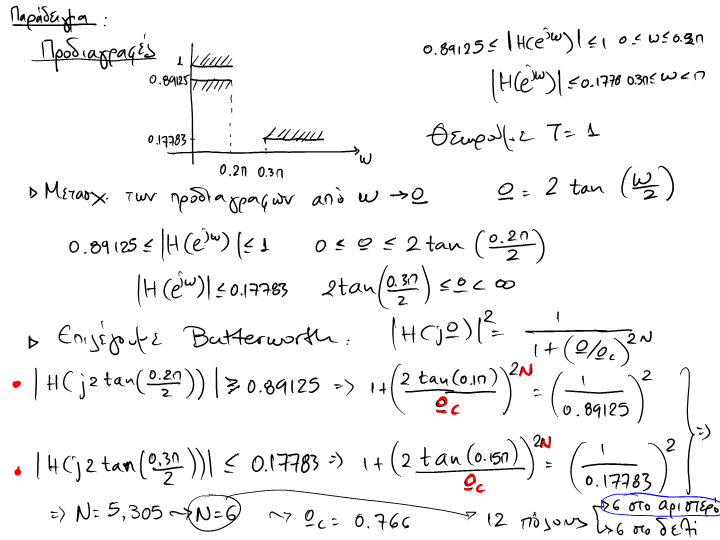 Παράδειγμα :
Προδιαγραφές
1
0.89125
0.17783
0.2π 0.3π ω
0.89125 ≤ |H(e^{jω})| ≤ 1 0 ≤ ω ≤ 0.2π
|H(e^{jω})| ≤ 0.1778 0.3π ≤ ω < π
Θεωρούμε T = 1
▷ Μετασχ. των προδιαγραφών από ω → Ω Ω = 2 tan (ω/2)
0.89125 ≤ |H(e^{jω})| ≤ 1 0 ≤ Ω ≤ 2 tan (0.2π/2)
|H(e^{jω})| ≤ 0.17783 2 tan(0.3π/2) ≤ Ω < ∞
▷ Επιλέγουμε Butterworth: |H(jΩ)|² = 1/(1+(Ω/Ωc)^{2N})
• |H(j2 tan(0.2π/2))| ≥ 0.89125 => 1+(2 tan(0.1π)/Ωc)^{2N} = (1/0.89125)²
• |H(j2 tan(0.3π/2))| ≤ 0.17783 => 1+(2 tan(0.15π)/Ωc)^{2N} = (1/0.17783)² =>
=> N = 5,305 ~> N=6 ~> Ωc = 0.766 → 12 πόλους → 6 στο αριστερό
→ 6 στο δεξί